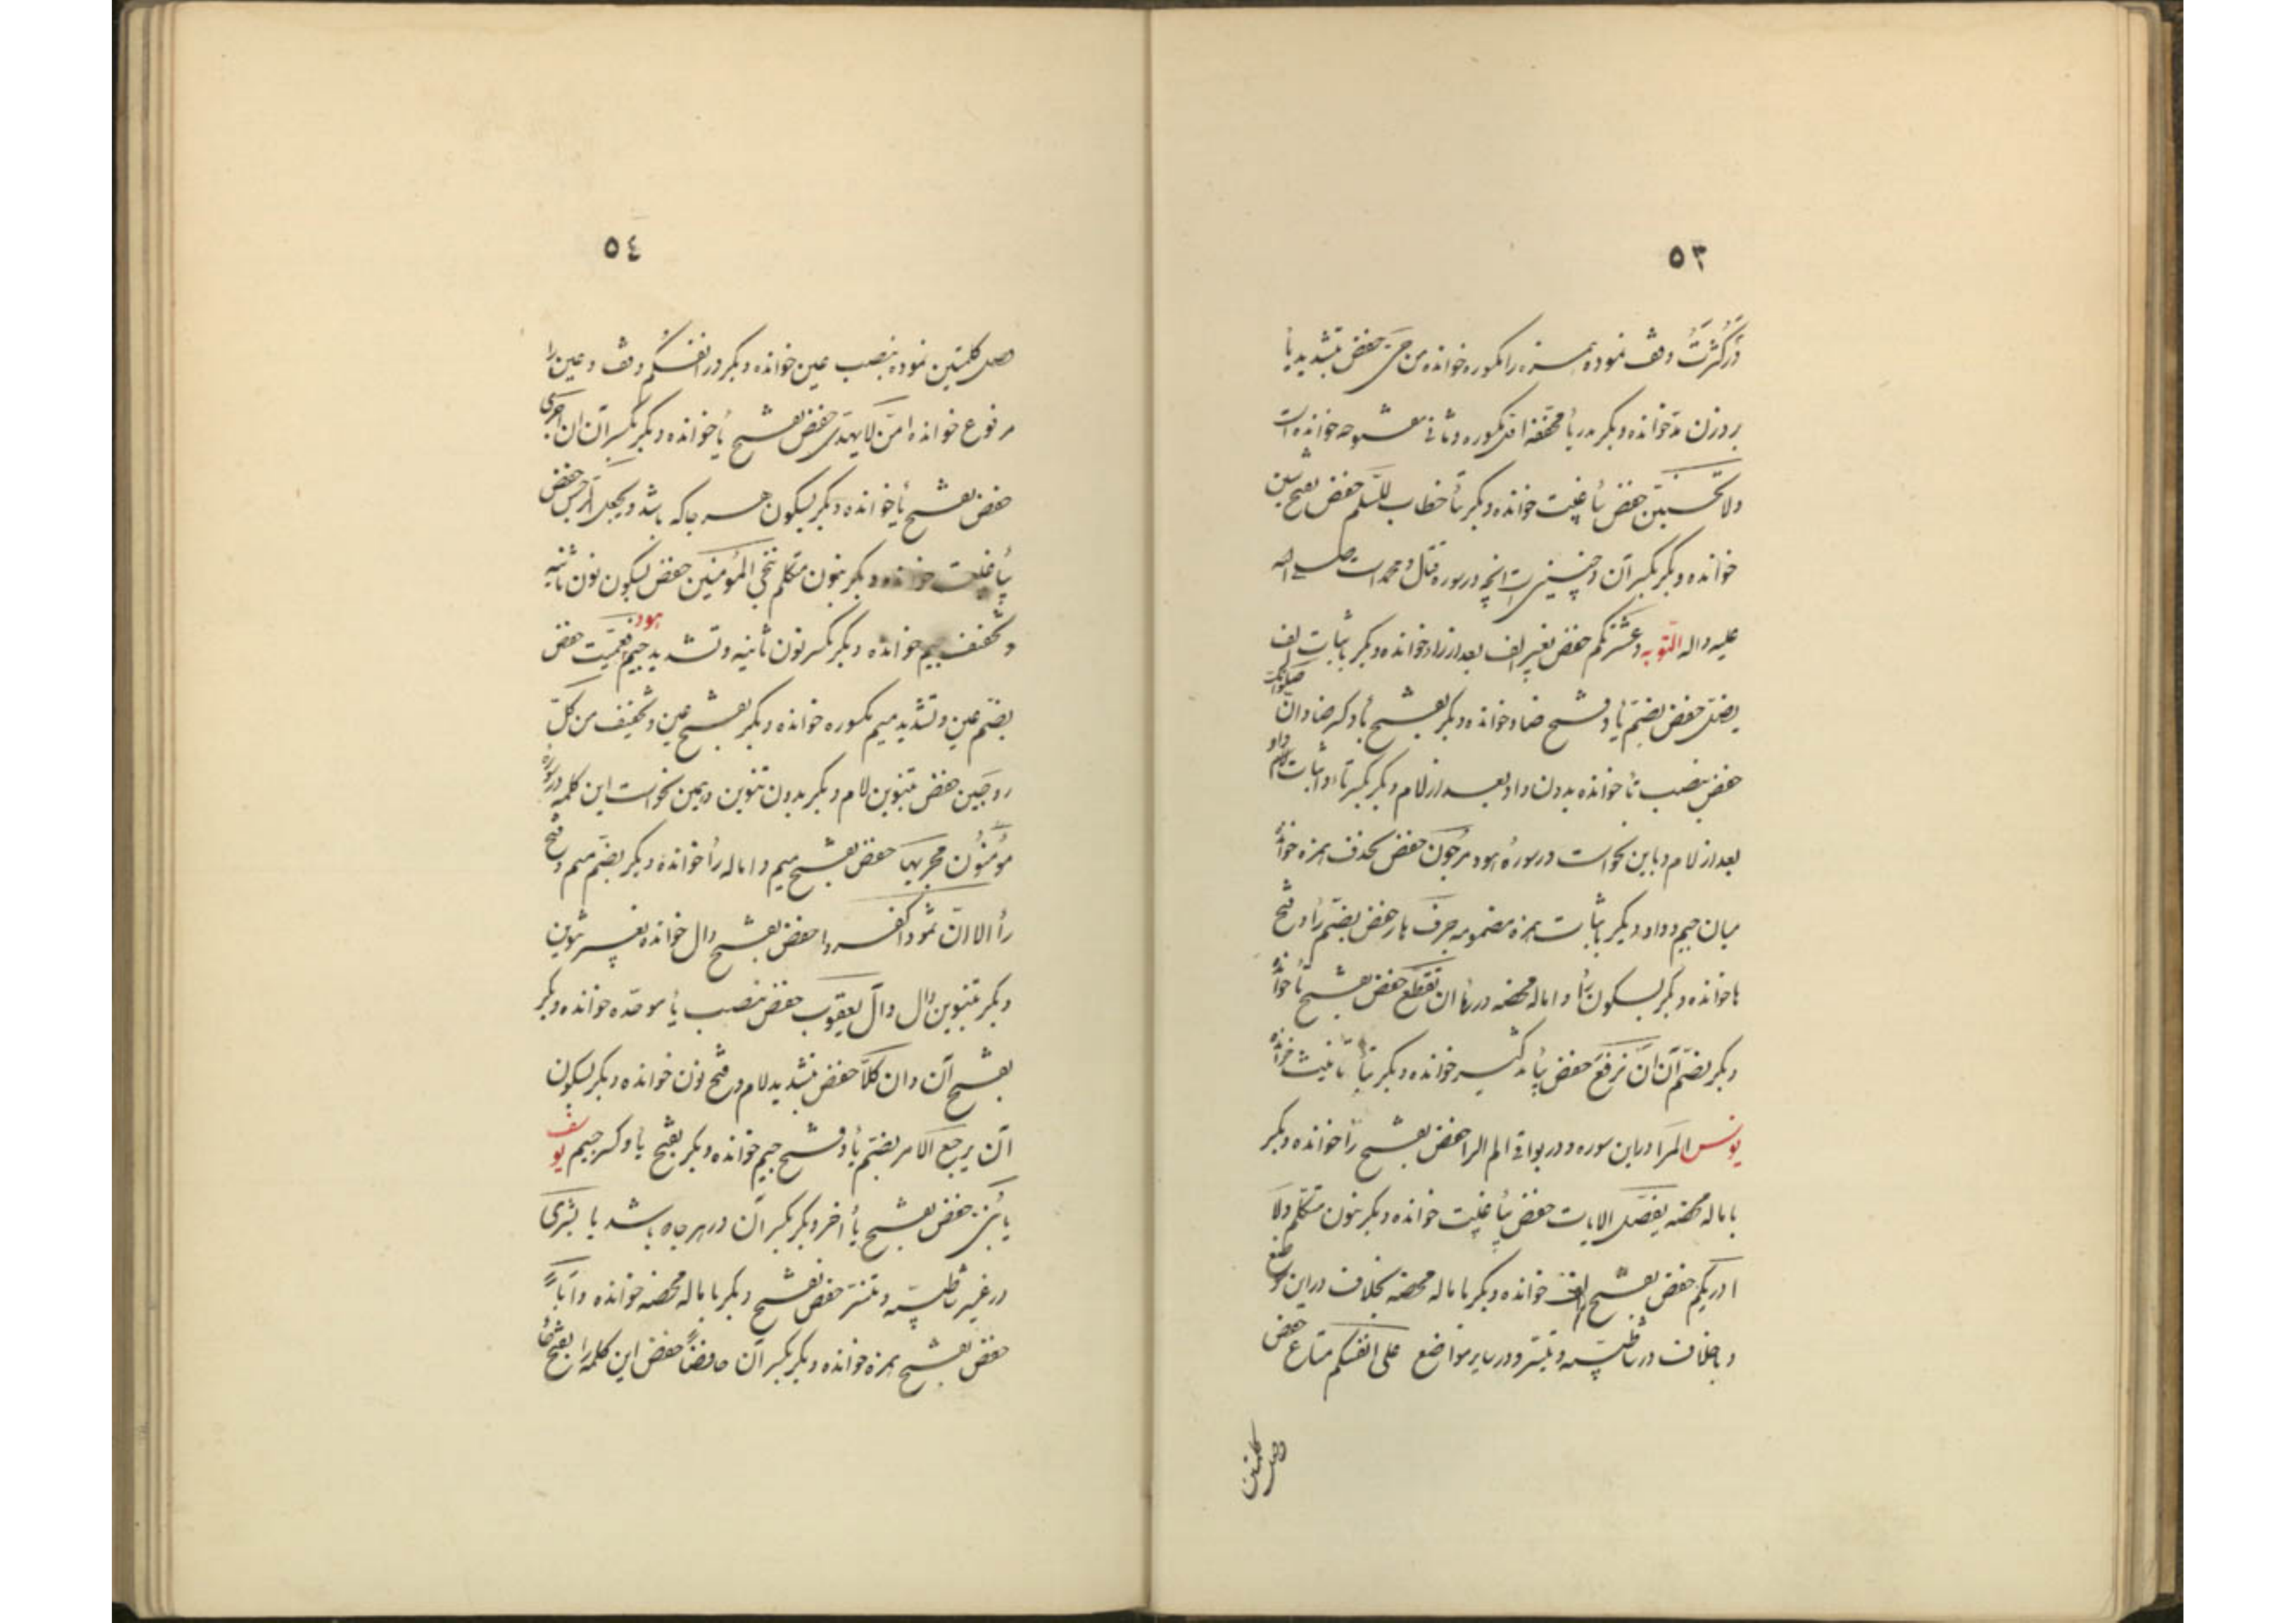 ٥٣
وَلَو كَثُرَتْ وقف نموده همزه را مکسوره خوانده من حَیَّ حفص بتشدید یأ
بروزن مدّ خوانده و بکر بدو یأ مخففه اوّل مکسوره و ثانی مفتوحه خوانده است
ولا تحسبنّ حفص بیأ غیبت خوانده و بکر بتأ خطاب للسّلم حفص بفتح سین
خوانده و بکر بکسر آن و چنین است آنچه در سوره قتال و محمد است صلی الله
علیه و اله التّوبه و عشیرتکم حفص بغیر الف بعد از راء خوانده و بکر باثبات الف
یضلّ حفص بضمّ یأ و فتح ضاد خوانده و بکر بفتح یأ و کسر ضاد انّ صلوتک
حفص بنصب تأ خوانده بدون واو بعد از لام و بکر بکسر تاء و اثبات واو
بعد از لام و باین نحو است در سورهٔ هود مرجون حفص بحذف همزه خوانده
میان جیم و واو و بکر باثبات همزه مضمومه جرف هار حفص بضمّ رأ و فتح
ها خوانده و بکر بسکون رأ و اماله محضه در هأ ان تقطّع حفص بفتح تأ خوانده
و بکر بضمّ آن ان تزیغ حفص بیأ تذکیر خوانده و بکر بتأ تأنیث خوانده
یونس المرا در این سوره و در بواقی الم الرا حفص بفتح رأ خوانده و بکر
باماله محضه یفصّل الایات حفص بیأ غیبت خوانده و بکر بنون متکلّم ولا
ادریکم حفص بفتح الف خوانده و بکر باماله محضه بخلاف در این موضع
و باخلاف در شاطبیّه و تیسیر و در سایر مواضع علی انفسکم متاع حفص
وصل کلمتین
٥٤
وصل کلمتین نموده بنصب عین خوانده و بکر در انفسکم وقف و عین را
مرفوع خوانده امّن لا یهدّی حفص بفتح یأ خوانده و بکر بکسر آن ان اجری
حفص بفتح یأ خوانده و بکر بسکون هر جا که باشد و یجعل الرّجس حفص
بیأ غیبت خوانده و بکر بنون متکلّم ننجی المؤمنین حفص بسکون نون ثانیه
و تخفیف جیم خوانده و بکر بکسر نون ثانیه و تشدید جیم هود فعمّیت حفص
بضمّ عین و تشدید میم مکسوره خوانده و بکر بفتح عین و تخفیف من کلّ
زوجین حفص بتنوین لام و بکر بدون تنوین و بهمین نحو است این کلمه در سوره
مؤمنون مجریها حفص بفتح میم و اماله رأ خوانده و بکر بضمّ میم و فتح
رأ الا انّ ثمود اکفروا حفص بفتح دال خوانده بغیر تنوین
و بکر بتنوین دال و آل یعقوب حفص بنصب یأ موحّده خوانده و بکر
بفتح آن و ان کلّاً حفص بتشدید لام و فتح نون خوانده و بکر بسکون
آن یرجع الامر بضمّ یأ و فتح جیم خوانده و بکر بفتح یأ و کسر جیم یوسف
یا بُنَیَّ حفص بفتح یأ آخر و بکر بکسر آن در هر جاه باشد یا بشری
در غیر شاطبیّه و تیسیر حفص بفتح و بکر باماله محضه خوانده دأباً
حفص بفتح همزه خوانده و بکر بکسر آن حافظاً حفص این کلمه را بفتح حأ